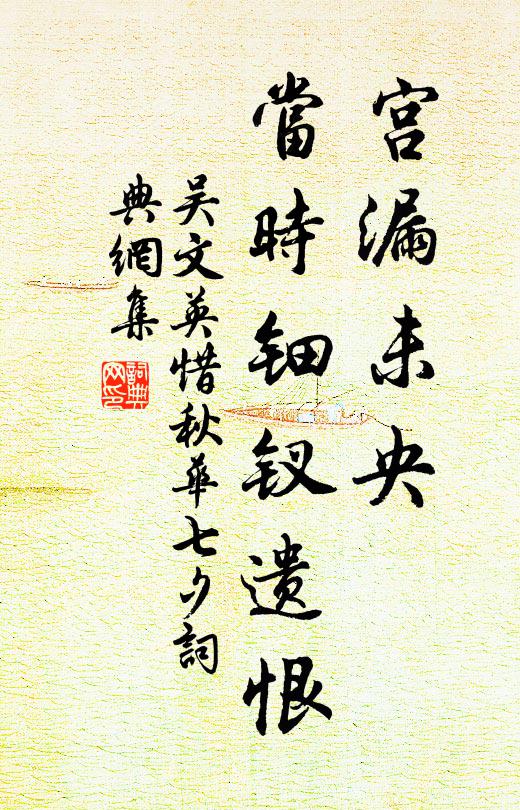 宫漏未央
當時钿钗遗恨
吴文英惜秋華七夕詞
典網集
詞典
网印